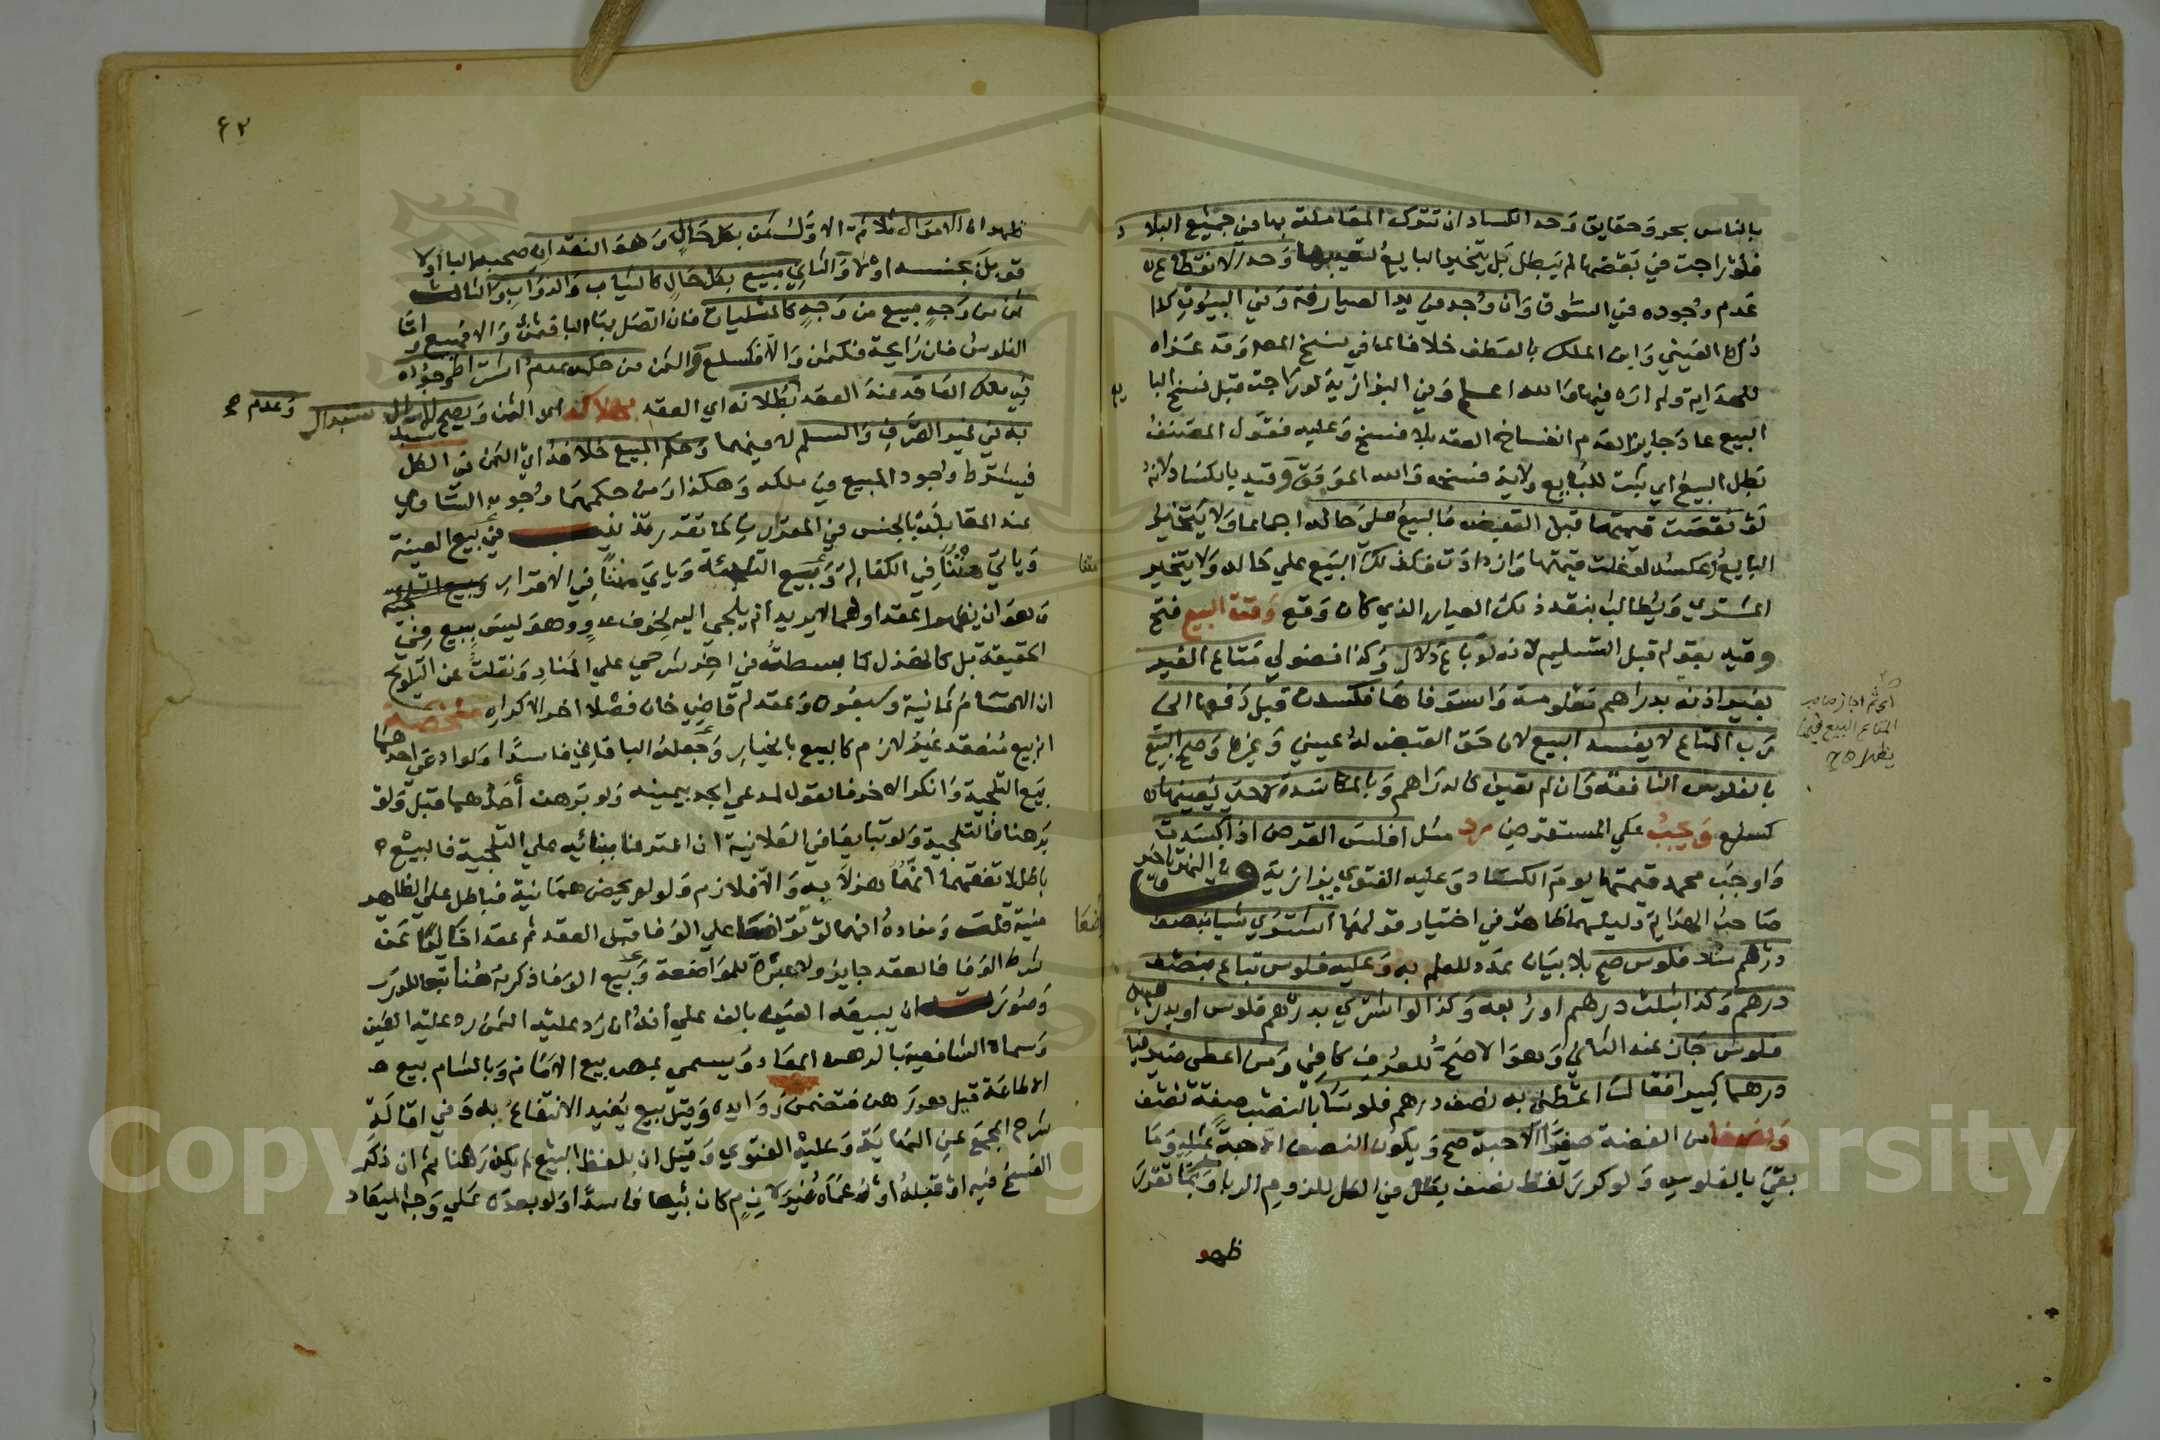 بالناس بحر وحقايق وحد الكساد ان تترك المعاملة بها في جميع البلاد
فلو راجت في بعضها لم يبطل بل يتخير البايع لتعيبها وحد الانقطاع
عدم وجوده في السوق وان وجد في يد الصيارفة وفي البيوت كذا
ذكره العيني وابن الملك بالعطف خلافا لما في نسخ المص وقد عزاه
للهداية ولم اره فيها والله اعلم وفي البزازية لو راجت قبل فسخ البا يع
البيع عاد جايزا لعدم انفساخ العقد بلا فسخ وعليه فقول المصنف
بطل البيع اي ثبت للبايع ولاية فسخه والله الموفق وقيد بالكساد لانه
لو نقصت قيمتها قبل القبض فالبيع على حاله اجماعا ولا يتخير
البايع وعكسه لو غلت قيمتها وازدادت فكذلك البيع على حاله ولا يتخير
المشتري ويطالب بنقد ذلك العيار الذي كان وقع وقت البيع فتح
وقيد بقوله قبل التسليم لانه لو باع دلال وكذا فضولي متاع الغير
بغير اذنه بدراهم معلومة واستوفاها فكسدت قبل دفعها الى
رب المتاع لا يفسد البيع لان حق القبض له عيني وغيره وصح البيع
بالفلوس النافقة وان لم تعين كالدراهم وبالكاسدة لا حتى يعينها
كسلع ويجب على المستقرض رد مثل افلس القرض اذا كسدت
واوجب محمد قيمتها يوم الكساد وعليه الفتوى بزازية وفي النهر وتاخير
صاحب الهداية دليلهما ظاهر في اختيار قولهما اشترى شيا بنصف
درهم مثلا فلوس صح بلا بيان عدد للعلم به وعليه فلوس تباع بنصف
درهم وكذا بثلث درهم او ربعه وكذا لو اشترى بدرهم فلوس او بدرهمين
فلوس جاز عند الثاني وهو الاصح للعرف كافي ومن اعطى صيرفيا
درهما كبيرا فقال اعطني به نصف درهم فلوسا بالنصب صفة نصف
ونصفا من الفضة صغيرا الا حبة صح ويكون النصف الا حبة بمثله وما
بقي بالفلوس ولو كرر لفظ نصف بطل في الكل للزوم الربا وبما تقرر
ظهر
اي ثم اجاز صاحب
المتاع البيع فيما
يظهر اه ح
٦٢
ظهر ان الاموال ثلاثة الاول ثمن بكل حال وهو النقدان صحبه البا او لا
قوبل بجنسه او لا والثاني مبيع بكل حال كالثياب والدواب والثالث
ثمن من وجه مبيع من وجه كالمثليات فان اتصل بها البا فثمن والا فمبيع واما
الفلوس فان رايجة فكثمن والا فكسلع والثمن من حكمه عدم اشتراط وجوده
في ملك العاقد عند العقد وعدم بطلانه اي العقد بهلاكه اي الثمن ويصح الاستبدال
به في غير الصرف والسلم لا فيهما وحكم المبيع خلافه اي الثمن في الكل
فيشترط وجود المبيع في ملكه وهكذا ومن حكمهما وجوب التساوي
عند المقابلة بالجنس في المقدرات كما تقرر تذنيب في بيع العينة
وياتي متنا في الكفالة وبيع التلجئة وياتي متنا في الاقرار
وهو ان يظهرا عقدا وهما لا يريدانه يلجئ اليه لخوف عدو وهو ليس ببيع في
الحقيقة بل كالهزل كما بسطته في اخر شرحي على المنار ونقلت عن التلويح
ان الاقسام ثمانية وسبعون وعقد له قاضي خان فصلا اخر الاكراه ملخصه
انه بيع منعقد غير لازم كالبيع بالخيار وجعله الباقاني فاسدا ولو ادعى احدهما
بيع التلجية وانكر الاخر فالقول لمدعي الجد بيمينه ولو برهن احدهما قبل ولو
برهنا فالتلجية ولو تبايعا في العلانية ان اعترفا ببنائه على التلجية فالبيع
باطل لاتفاقهما انهما هزلا به والا فلازم ولو لم يحضرهما نية فباطل على الظاهر
منية قلت ومفاده انهما لو تواضعا على الوفا قبل العقد ثم عقدا خاليا عن
شرط الوفا فالعقد جايز ولا عبرة للمواضعة وبيع الوفا ذكرته هنا تبعا للدرر
وصورته ان يبيعه العين بالف على انه ان رد عليه الثمن رد عليه العين
وسماه الشافعية بالرهن المعاد ويسمى بمصر بيع الامانة وبالشام بيع
الاطاعة قيل هو رهن فتضمن زوايده وقيل بيع يفيد الانتفاع به وفي اقالة
شرح المجمع عن النهاية وعليه الفتوى وقيل ان بلفظ البيع لم يكن رهنا ثم ان ذكر
الفسخ فيه او قبله او زعماه غير لازم كان بيعا فاسدا ولو بعده على وجه الميعاد